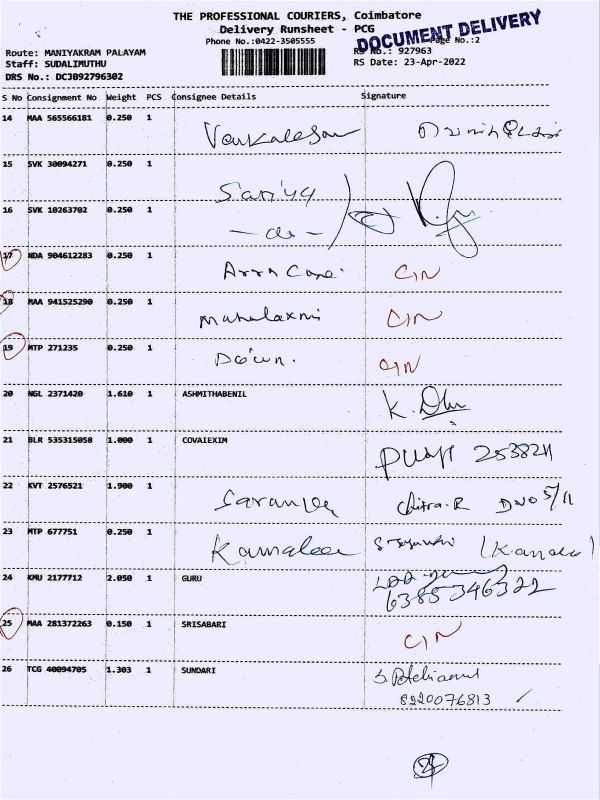 THE PROFESSIONAL COURIERS, Coimbatore
Delivery Runsheet - PCG
Phone No.:0422-3505555
DOCUMENT DELIVERY
Page No.:2
Route: MANIYAKRAM PALAYAM
RS No.: 927963
Staff: SUDALIMUTHU
RS Date: 23-Apr-2022
DRS No.: DCJB92796302
S No Consignment No Weight PCS Consignee Details Signature
14 MAA 565566181 0.250 1 Venkalesan
15 SVK 30094271 0.250 1
16 SVK 10263702 0.250 1 -do-
17 NDA 904612283 0.250 1 CIN
18 MAA 941525290 0.250 1 Mahalaxmi CIN
19 MTP 271235 0.250 1 CIN
20 NGL 2371420 1.610 1 ASHMITHABENIL K.
21 BLR 535315058 1.000 1 COVAIEXIM 2538211
22 KVT 2576521 1.900 1 Saranya Chitra.R DNO 5/11
23 MTP 677751 0.250 1
24 KMU 2177712 2.050 1 GURU
6385346322
25 MAA 281372263 0.150 1 SRISABARI CIN
26 TCG 40094705 1.303 1 SUNDARI
8220076813